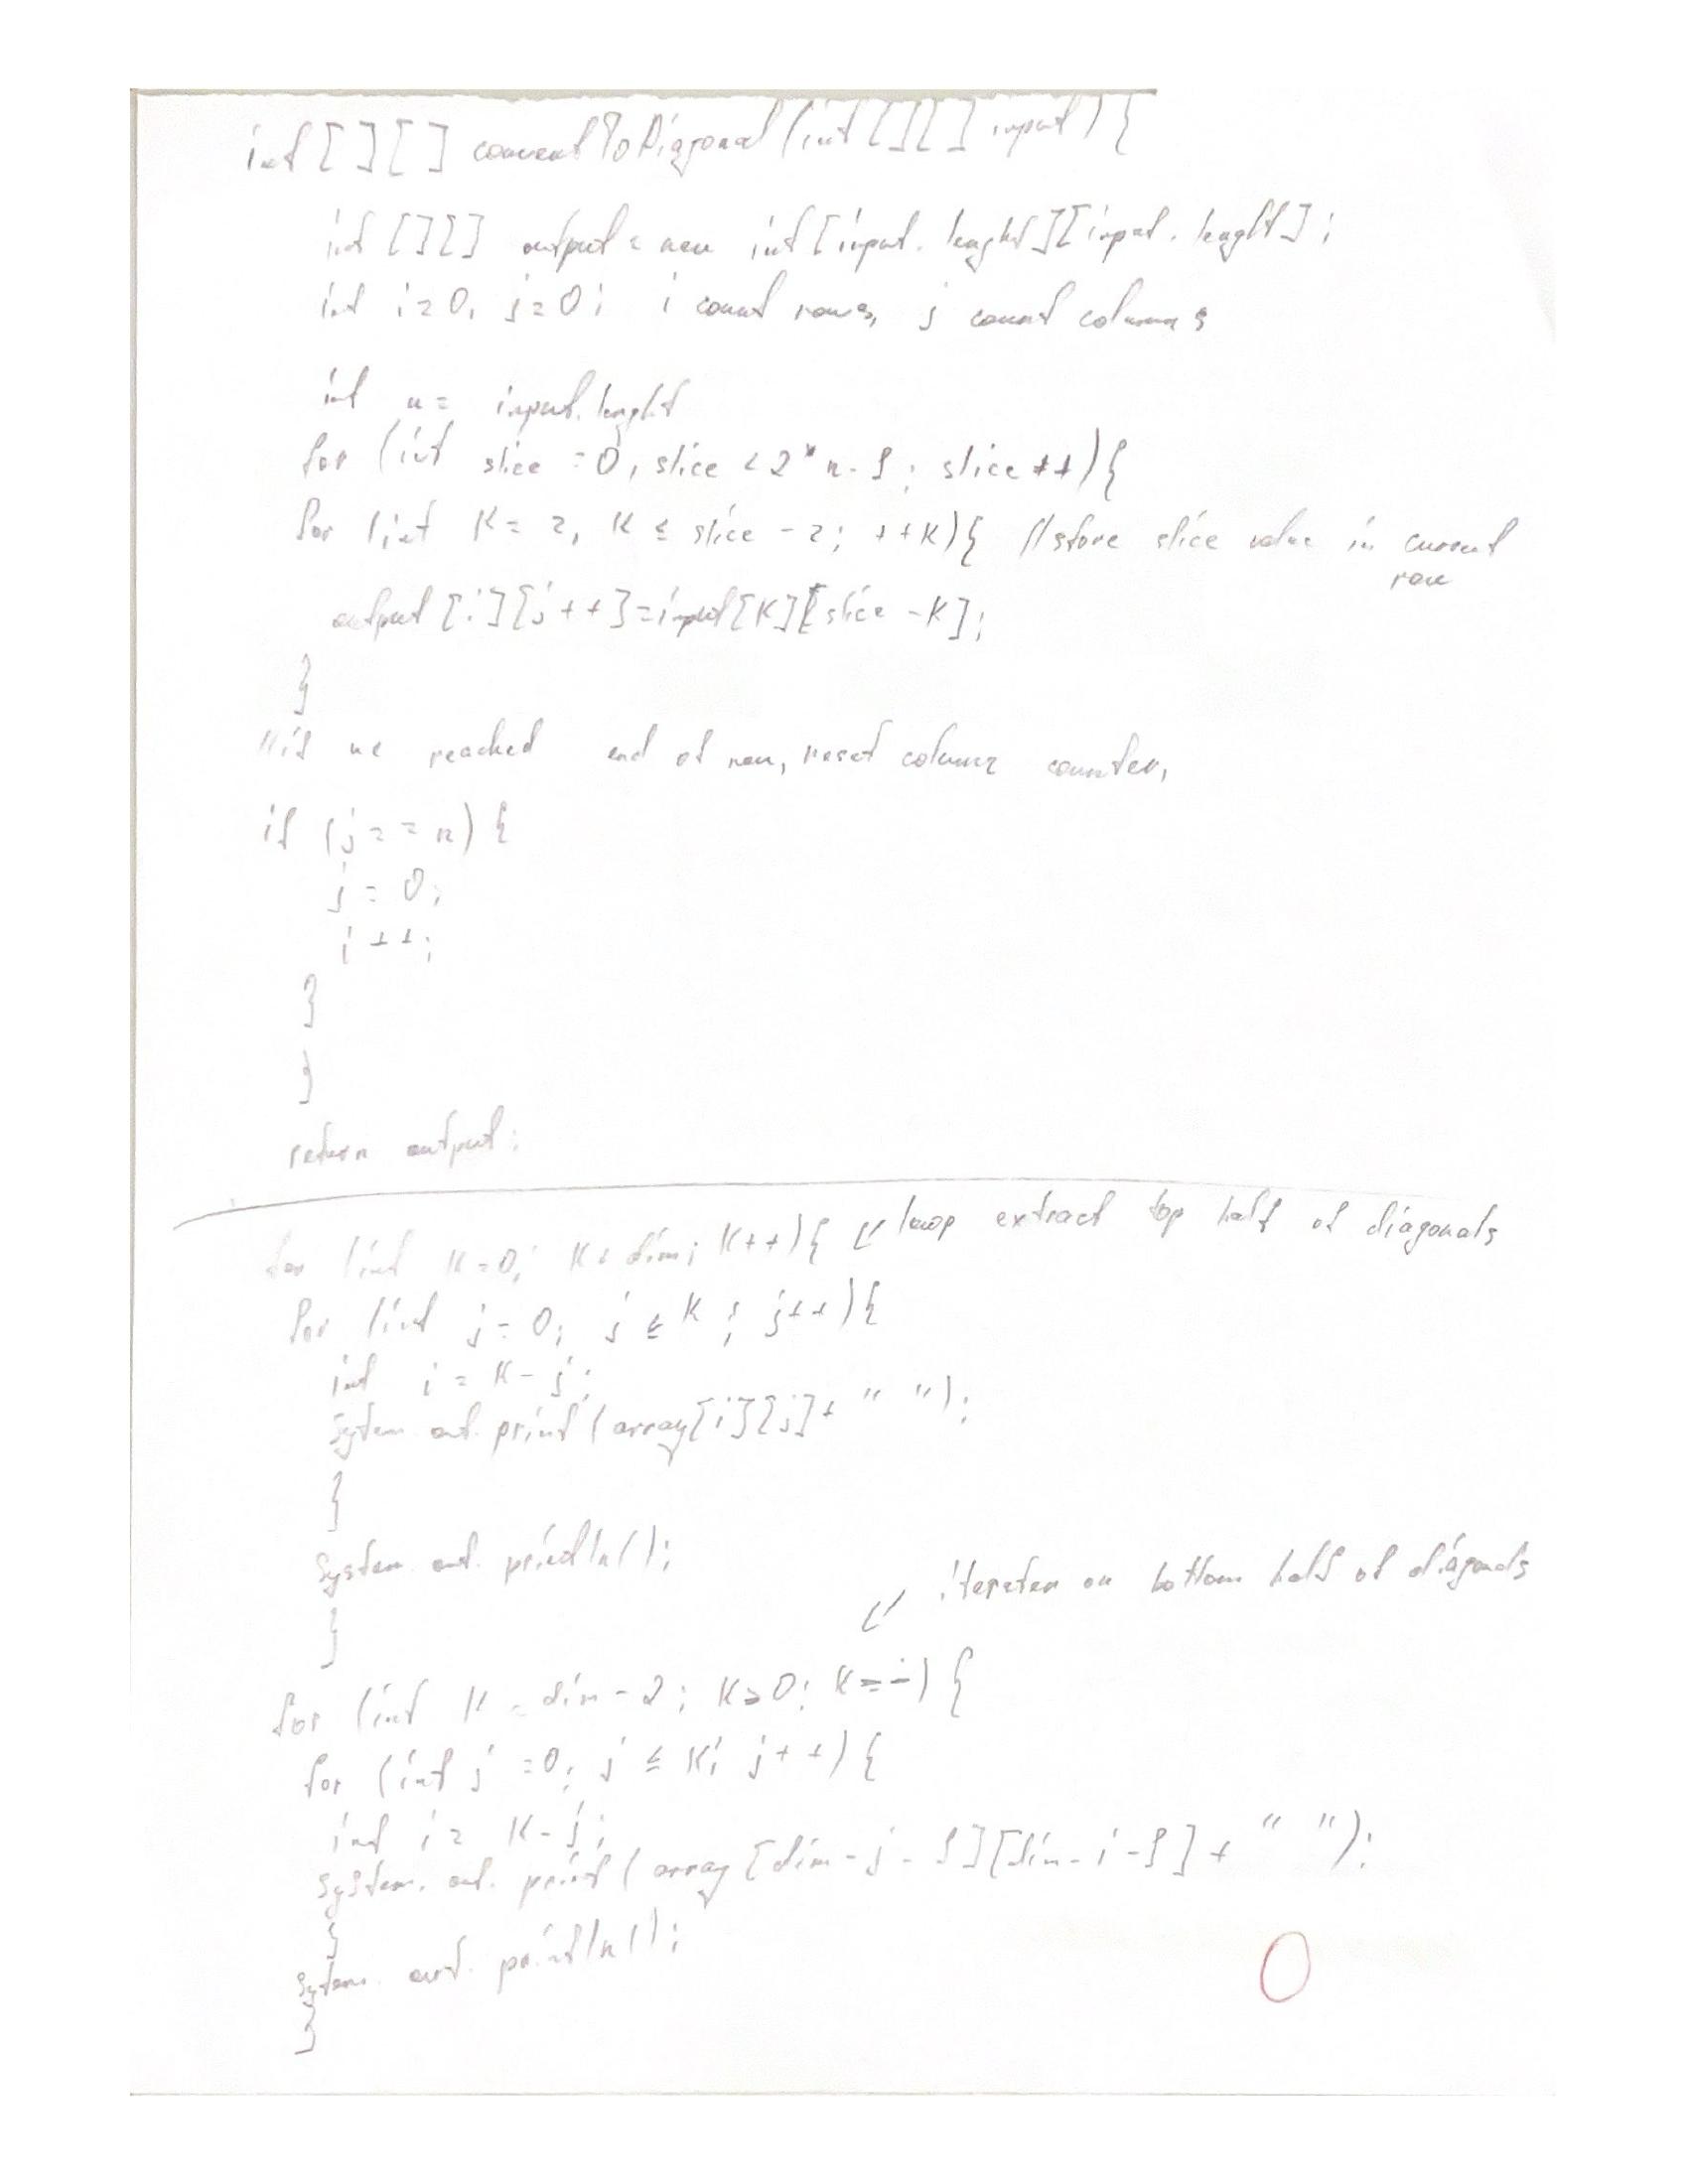 int [ ][ ] convertToDiagonal (int [ ][ ] input) {
int [ ][ ] output = new int [input. lenght][input. lenght];
int i = 0, j = 0; i count rows, j count columns
int n = input. lenght
for (int slice = 0, slice < 2 * n - 1; slice ++) {
for (int K = z, K ≤ slice - z; ++K) { // store slice value in current
row
output [i][j ++] = input [K][slice - K];
}
// if we reached end of row, reset column counter,
if (j = = n) {
j = 0;
i ++;
}
}
return output;
for (int K = 0; K < dim; K++) { loop extract top half of diagonals
for (int j = 0; j ≤ K; j++) {
int i = K - j;
System. out. print (array [i][j] + " ");
}
System. out. println ();
iterater on bottom half of diagonals
}
for (int K = dim - 2; K ≥ 0; K = -) {
for (int j = 0; j ≤ K; j ++) {
int i = K - j;
System. out. print (array [dim - j - 1][dim - i - 1] + " ");
}
System. out. println ();
0
}